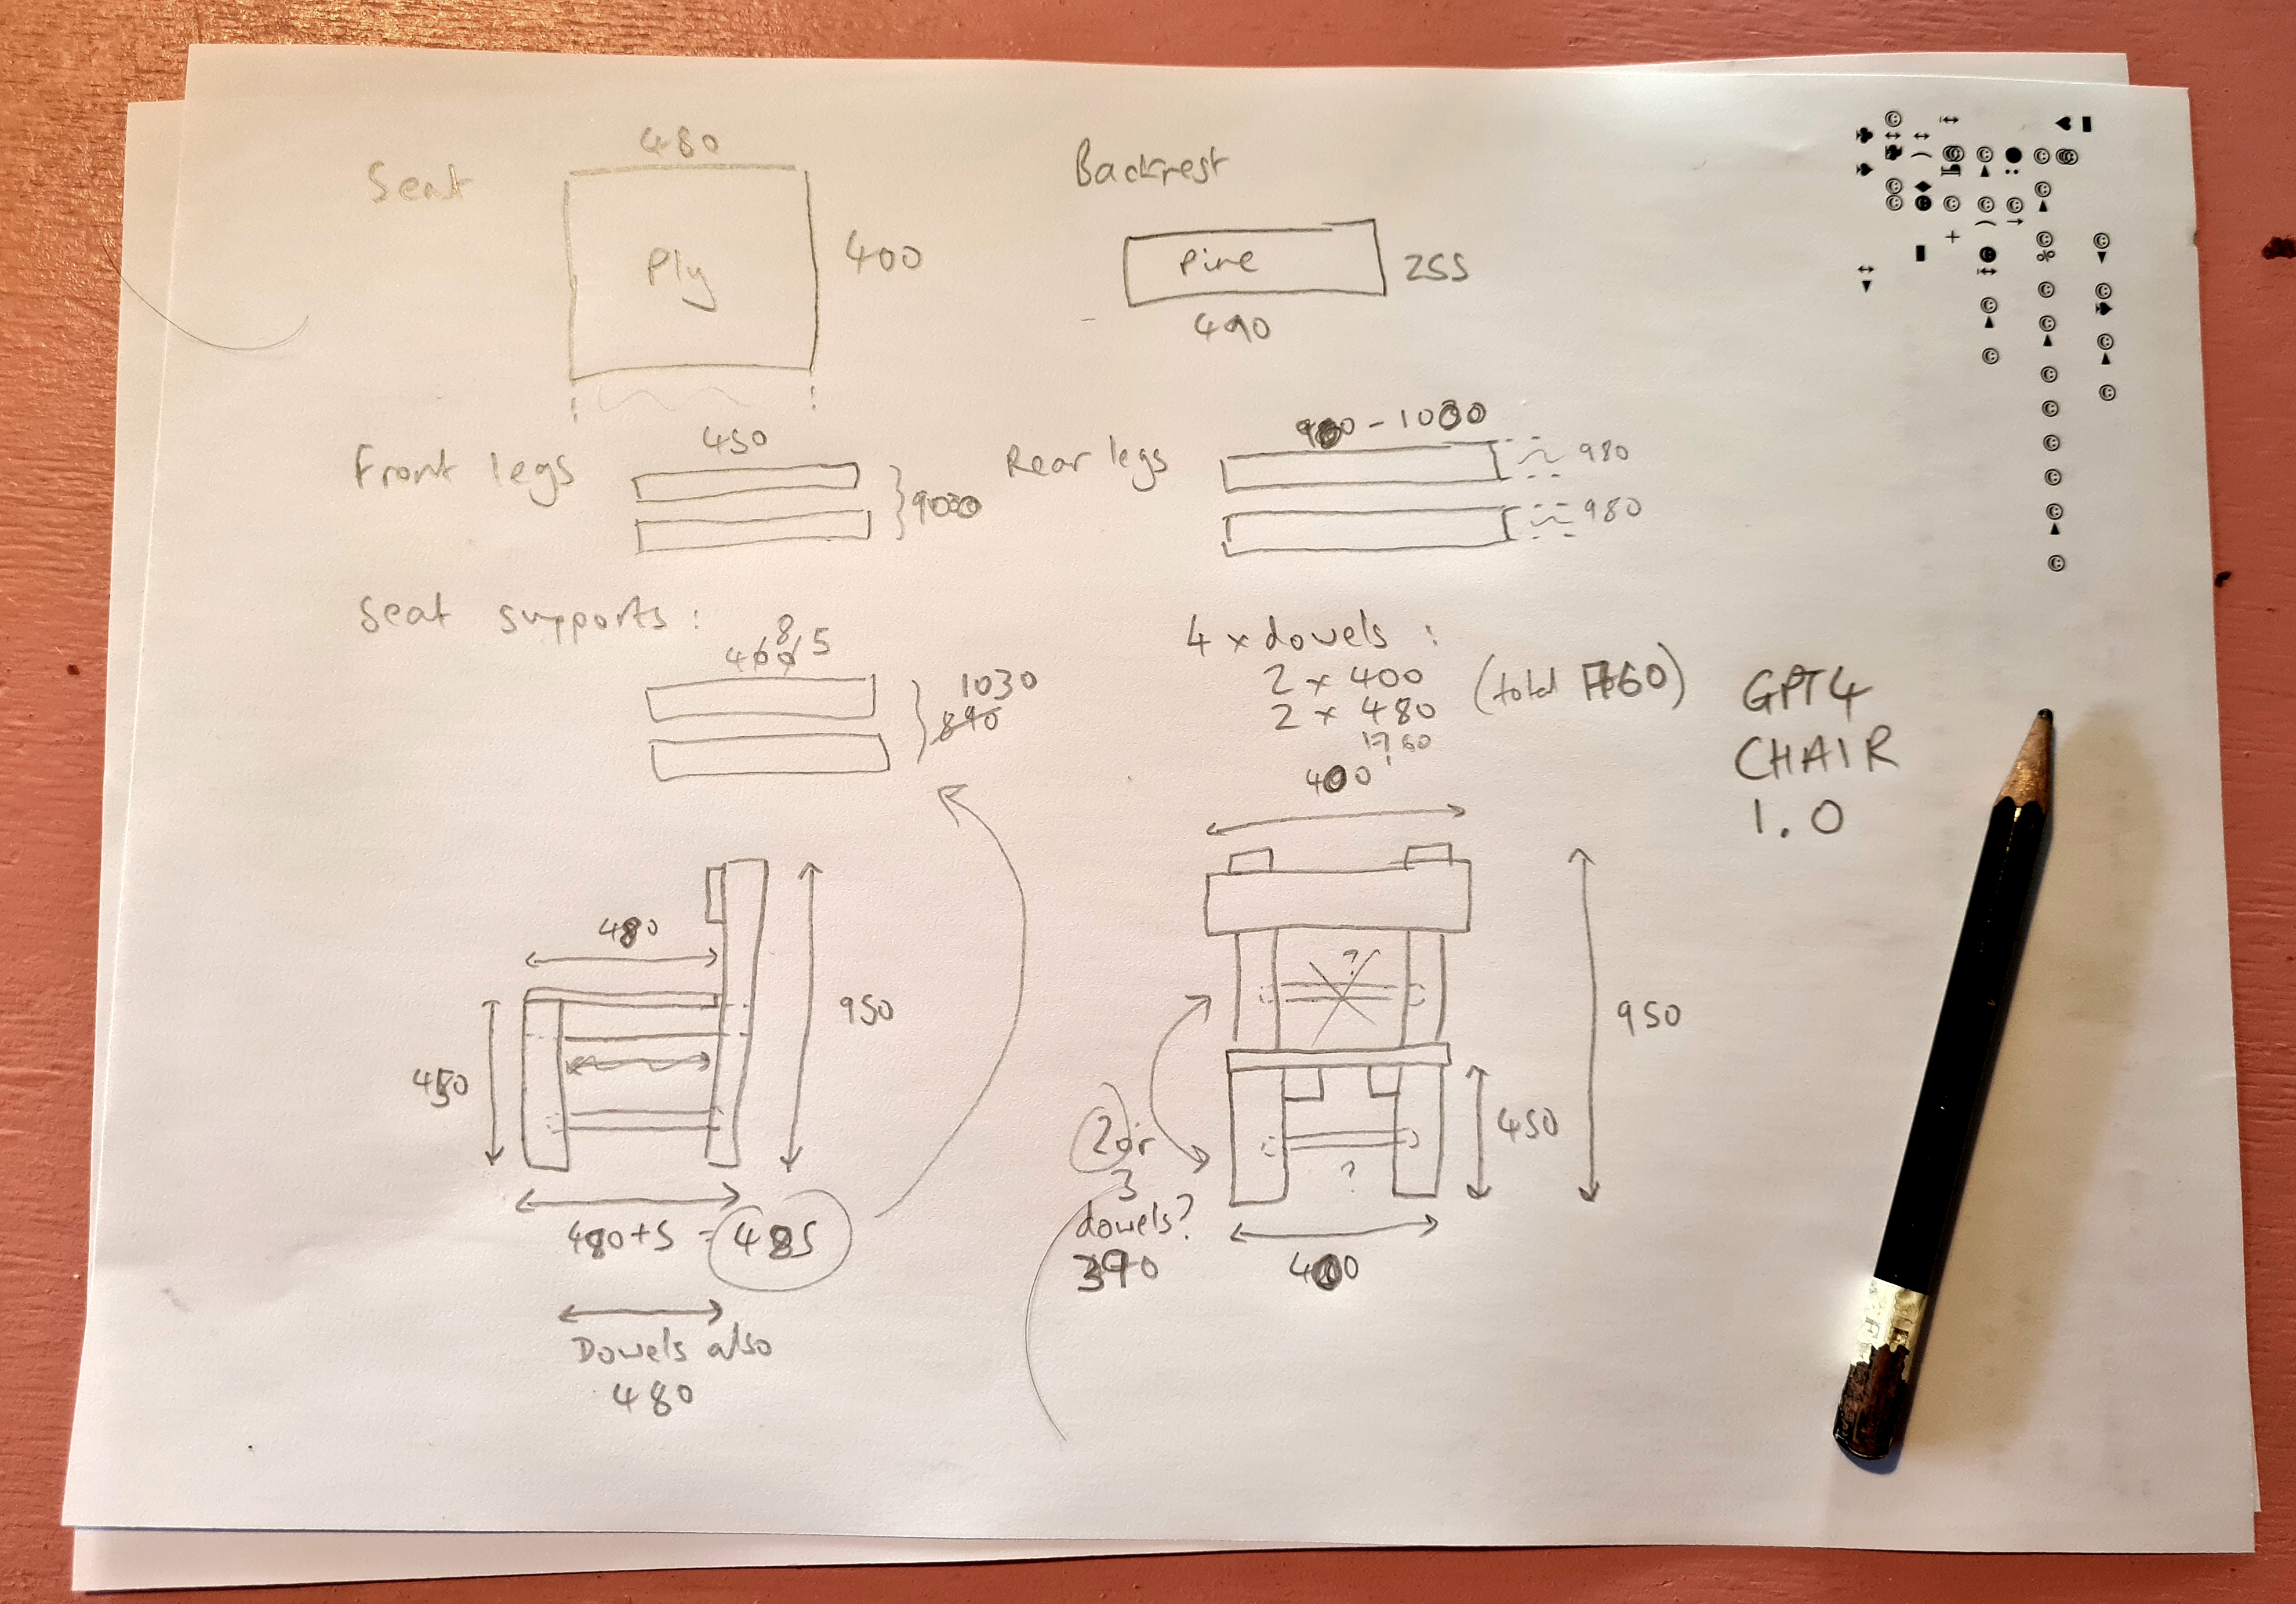 Seat
480
Ply
400
Backrest
Pine
255
Front legs
450
Rear legs
980
980
Seat supports :
1030
890
4 x dowels :
2 x 400
2 x 480
1760
400
GPT4
CHAIR
1.0
480
450
950
480+5 = 485
Dowels also
480
?
950
450
2 or
3
dowels?
390
?
400